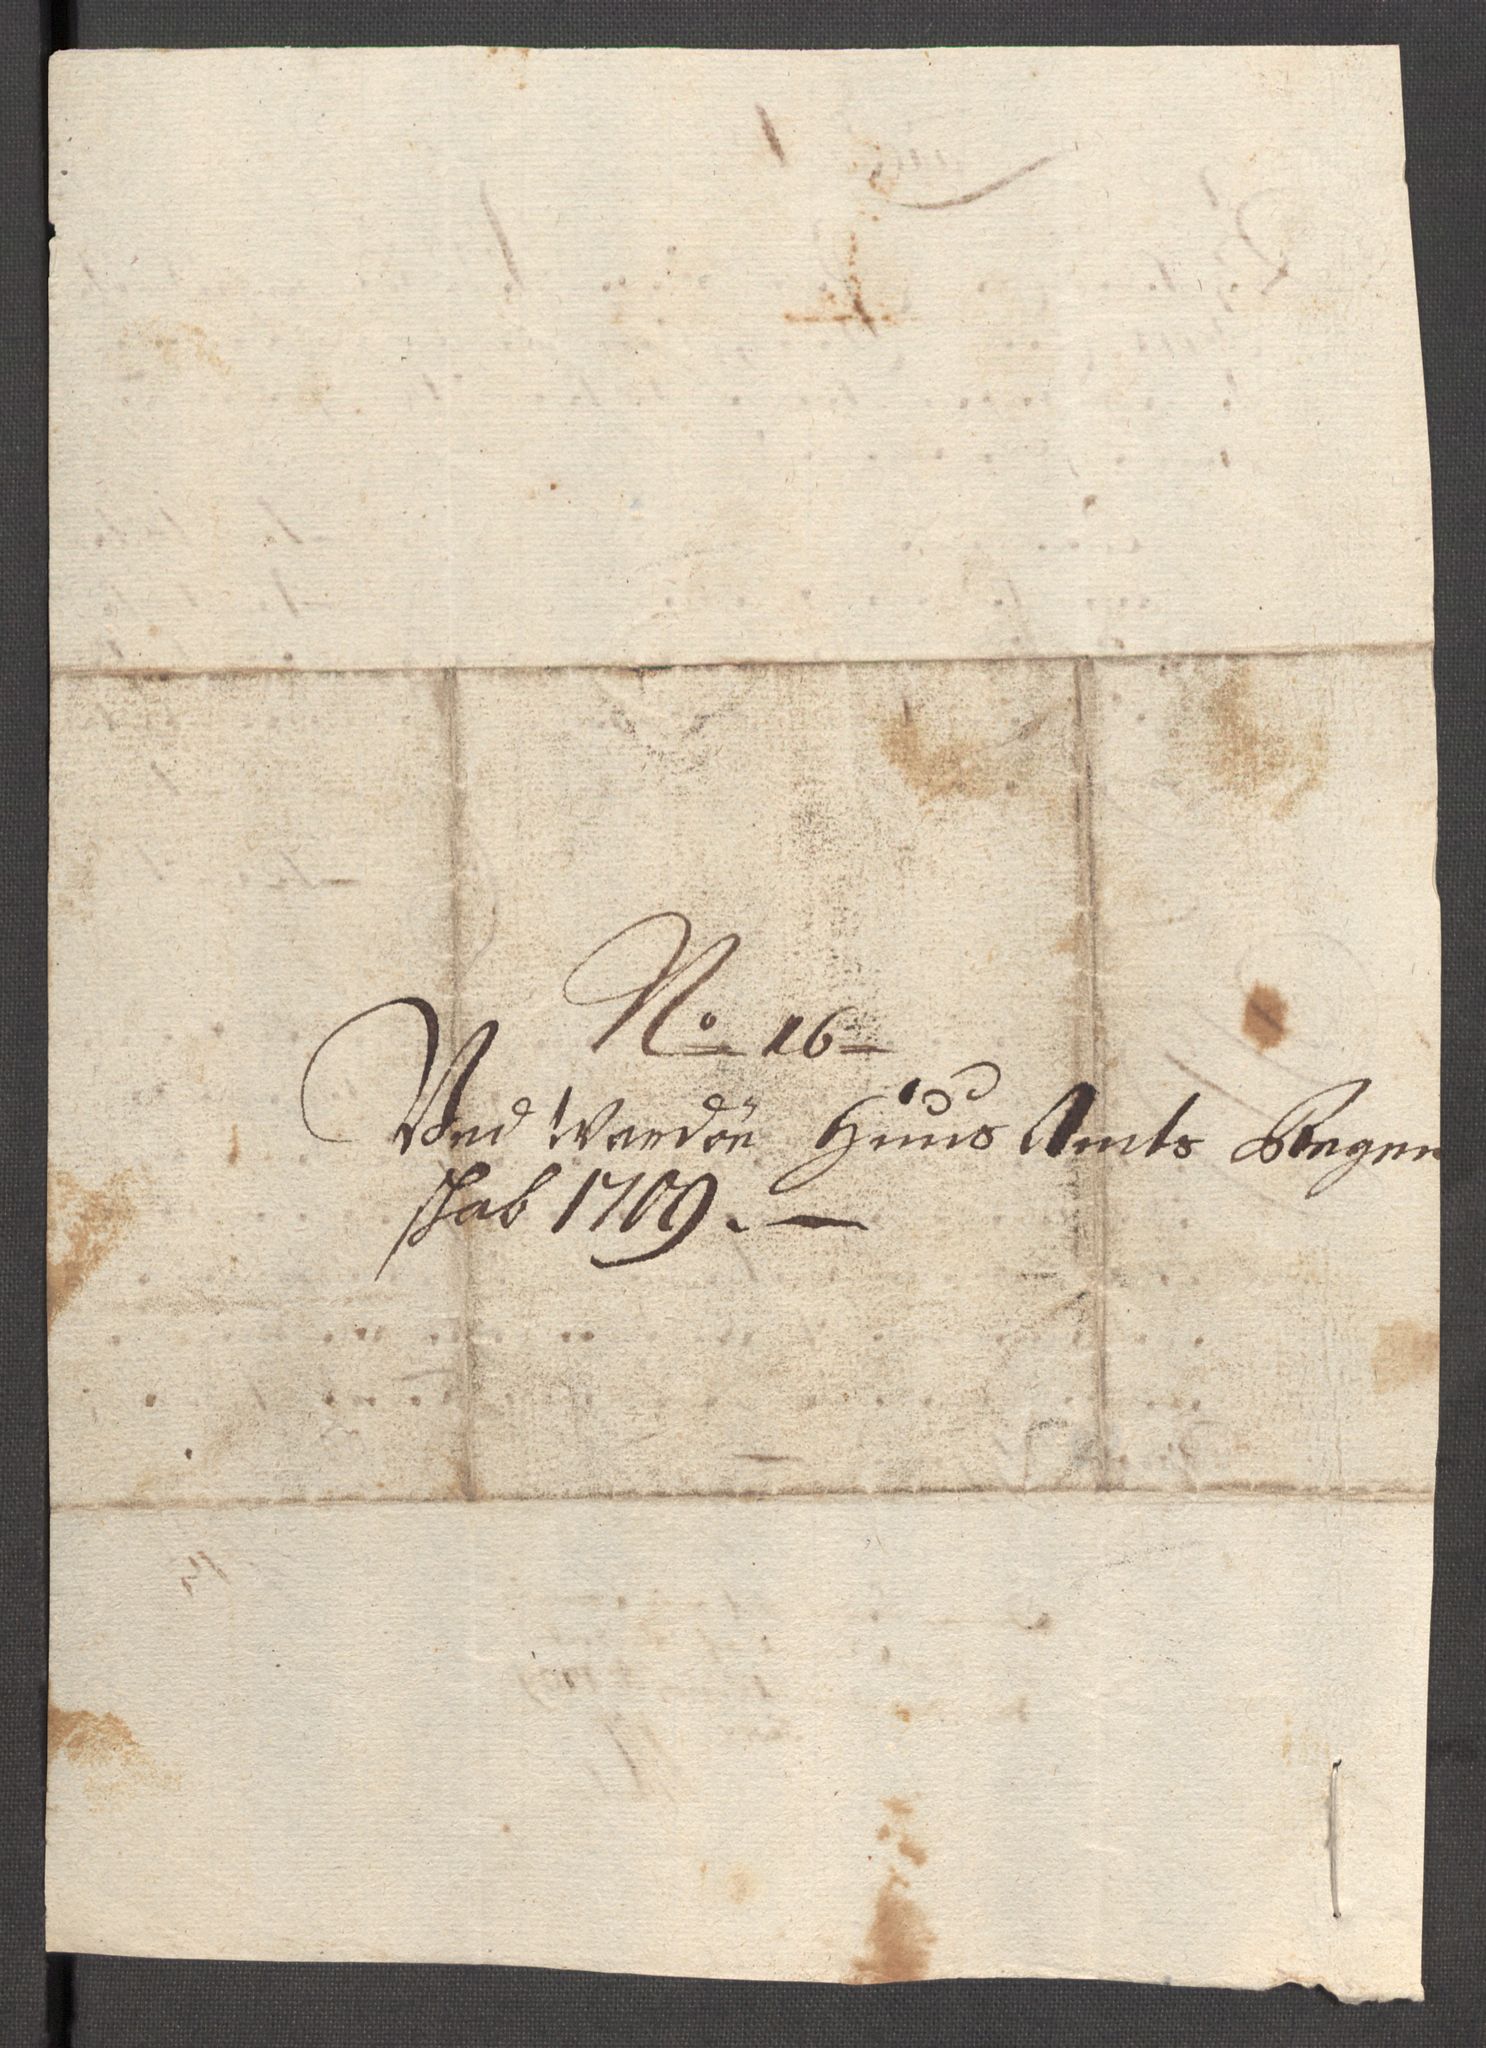 No 16
Ved Wardøe Huus Ambts Regen
skab 1709.